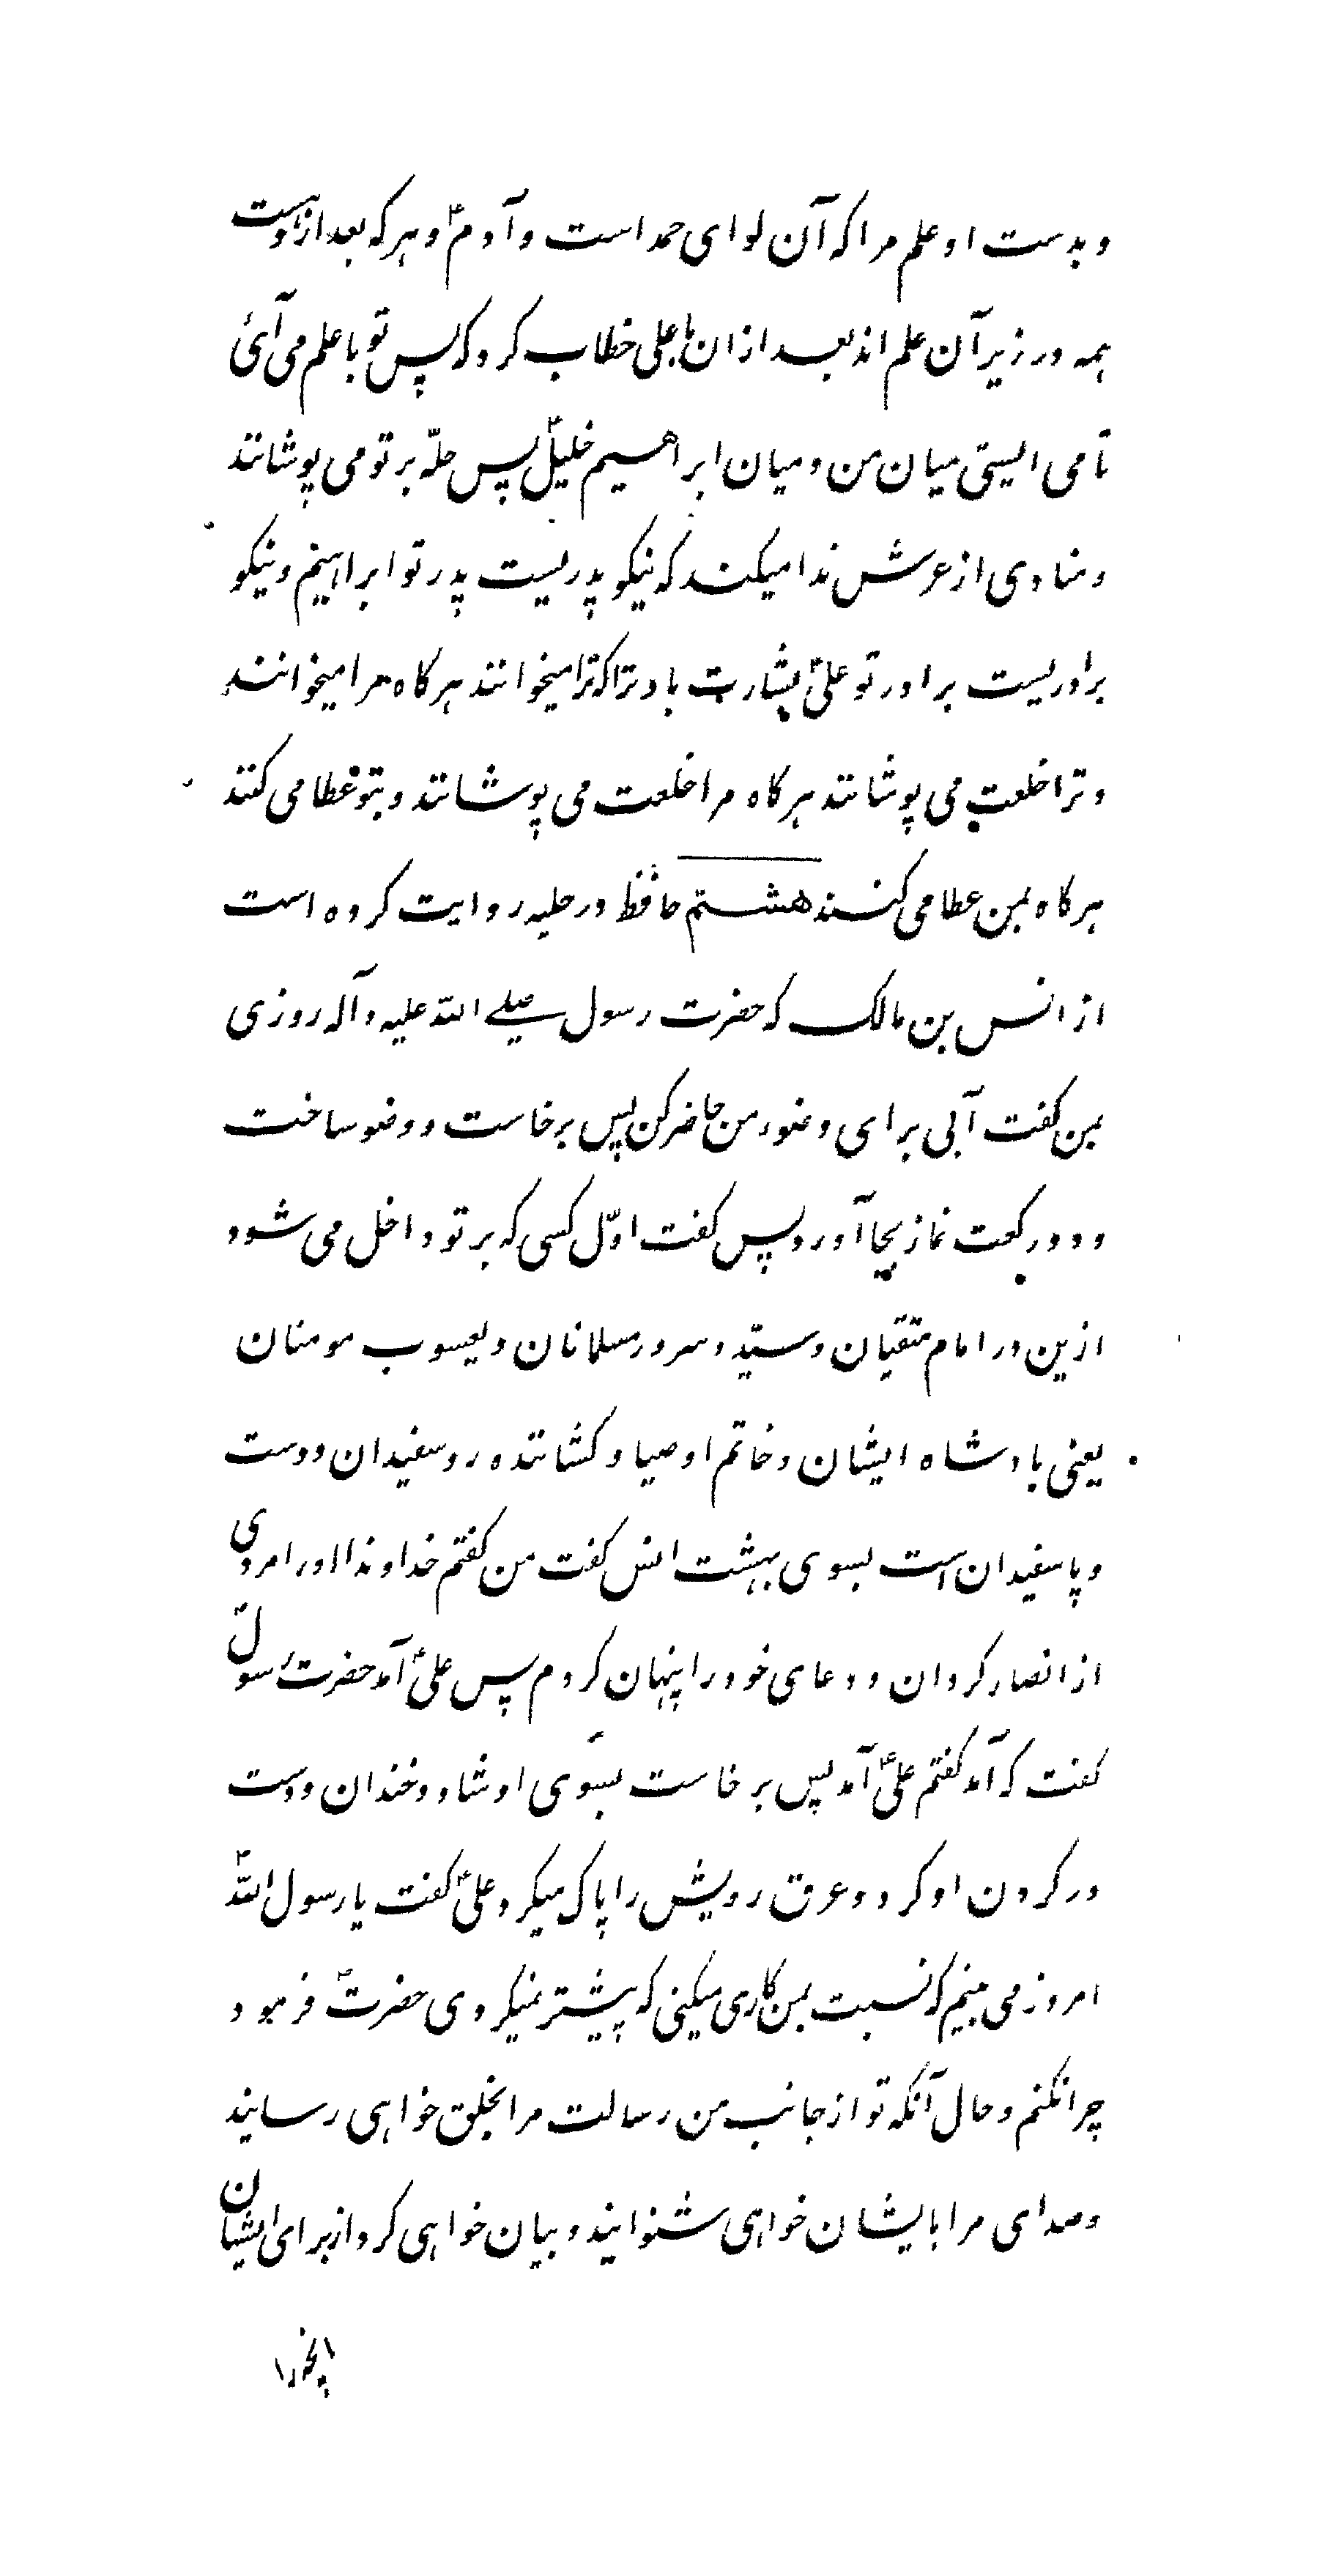 و بدست او علم مرا که آن لوای حمد است و آدمؑ و هرکه بعد ازوست
همه در زیر آن علم اند بعد ازان با علی خطاب کرد که پس تو با علم می آئی
تا می ایستی میان من و میان ابراهیم خلیلؑ پس حلّه بر تو می پوشانند
و منادی از عرش ندا میکند که نیکو پدریست پدر تو ابراهیم و نیکو
برادریست برادر تو علیؑ بشارت باد ترا که ترا میخوانند هرگاه مرا میخوانند
و ترا خلعت می پوشانند هرگاه مرا خلعت می پوشانند و بتو عطا می کنند
هرگاه بمن عطا می کنند هشتم حافظ در حلیه روایت کرده است
از انس بن مالک که حضرت رسول صلے الله علیه و آله روزی
بمن گفت آبی برای وضوء من حاضر کن پس برخاست و وضو ساخت
و دو رکعت نماز بجا آورد پس گفت اوّل کسی که بر تو داخل می شود
ازین در امام متقیان و سیّد و سرور مسلمانان و یعسوب مومنان
یعنی بادشاه ایشان و خاتم اوصیا و کشاننده رو سفیدان و دست
و پا سفیدان است بسوی بهشت انس گفت من گفتم خداوندا او را مردی
از انصار گردان و دعای خود را پنهان کردم پس علیؑ آمد حضرت رسولؐ
گفت که آمد گفتم علیؑ آمد پس برخاست بسوی او شاد و خندان و دست
در گردن او کرد و عرق رویش را پاک میکرد علیؑ گفت یا رسول اللهؐ
امروز می بینم که نسبت بمن کاری میکنی که پیشتر نمیکردی حضرتؐ فرمود
چرا نکنم و حال آنکه تو از جانب من رسالت مرا بخلق خواهی رسانید
و صدای مرا بایشان خواهی شنوانید و بیان خواهی کرد از برای ایشان